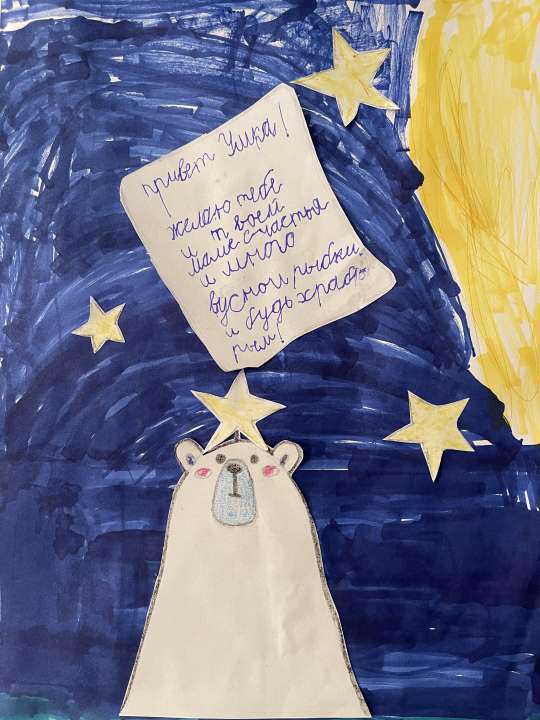 привет Умка!
желаю тебе
и твоей
маме счастья
и много
вусной рыбки
и будь храб-
рым!